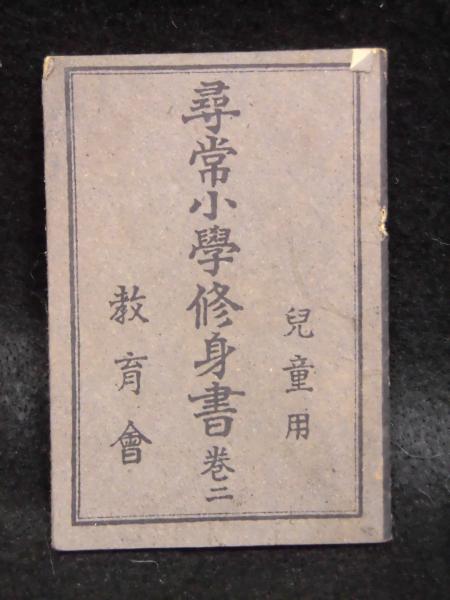 兒童用
尋常小學修身書 卷二
教育會